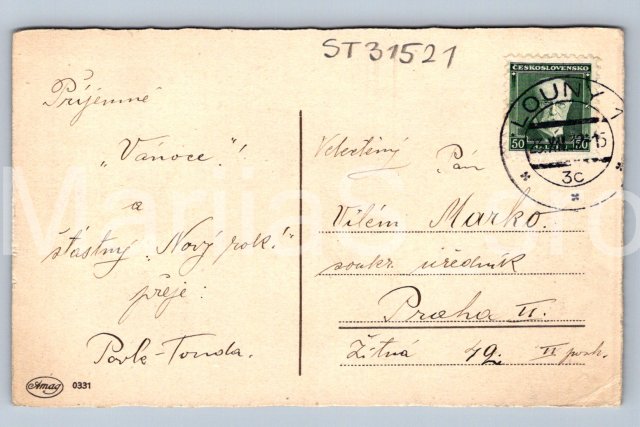 ST31521
ČESKOSLOVENSKO
50 50
LOUNY 1
3c
Příjemné
„Vánoce"!
a
šťastný „Nový rok!"
přeje:
Tonda.
Amag 0331
Velectěný Pán
Vilém Marko.
soukr. úředník
Praha II.
Žitná 49. II posch.